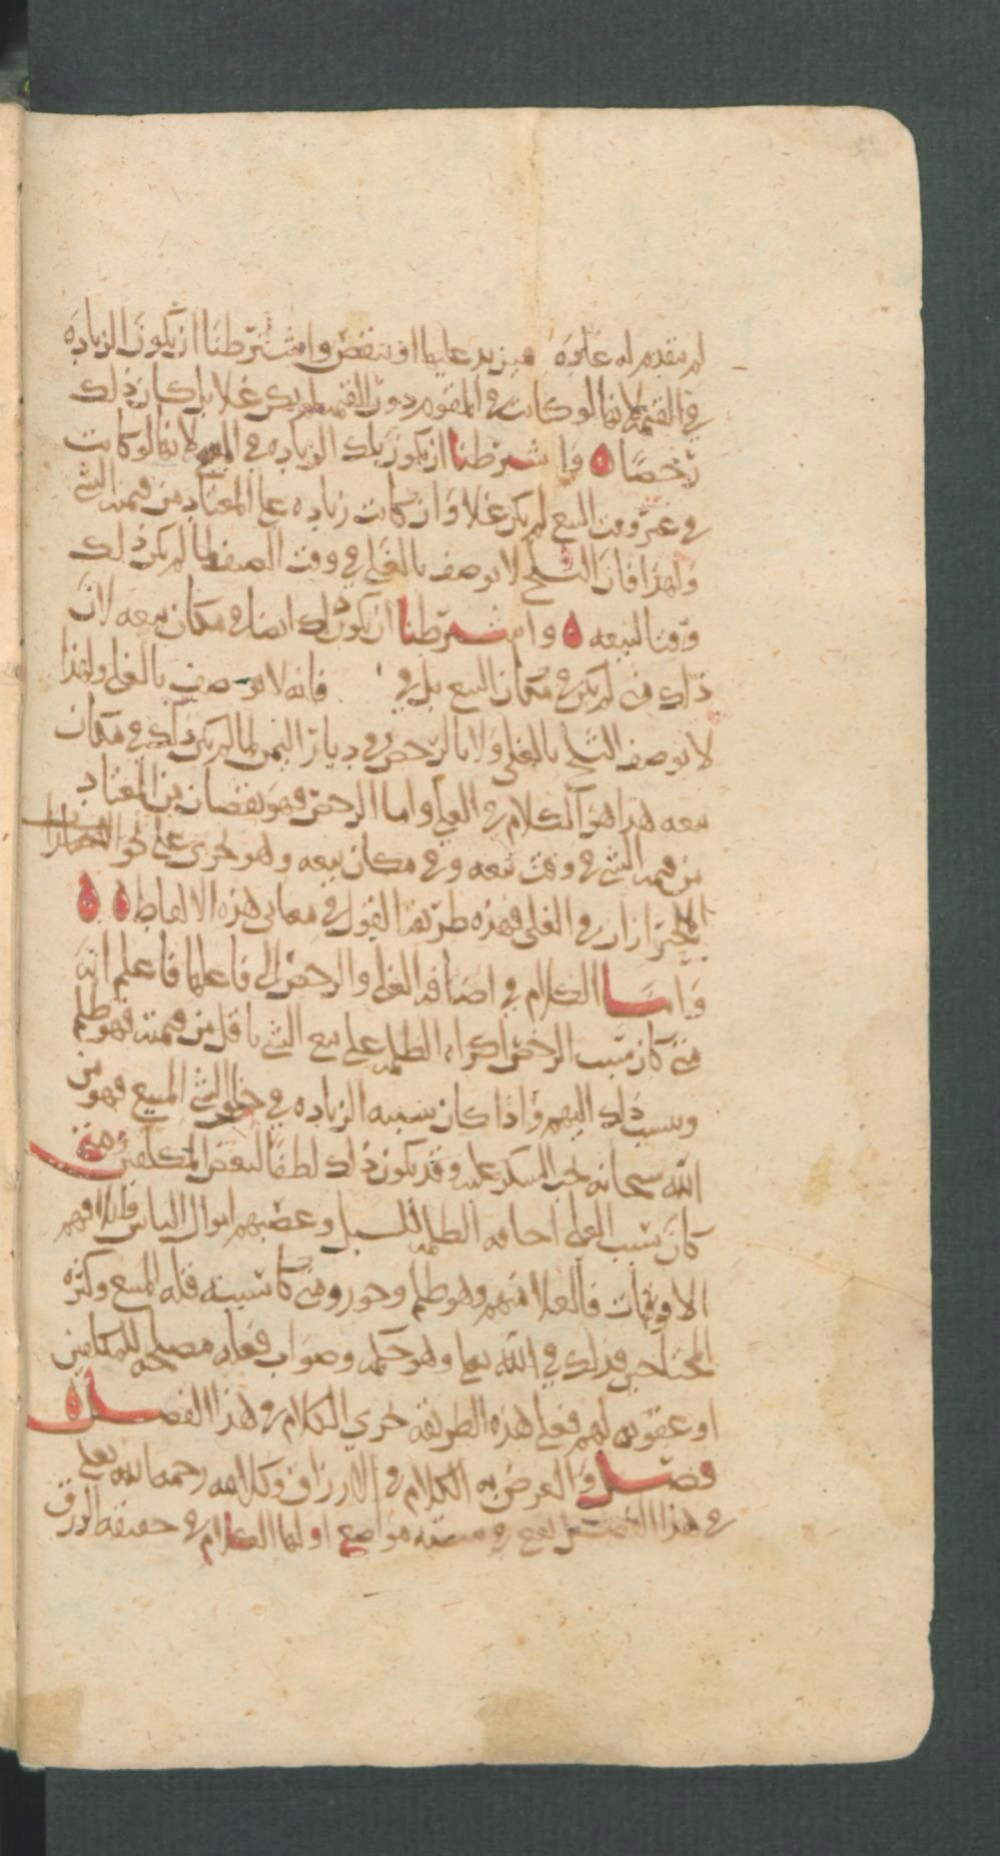 لم يتقدم له عادة فيزيد عليها او ينقص واشترطنا ان يكون الزيادة
في القيمة لانها لو كانت في المقوم دون القيمة لم يكن غلا بل كان ذلك
رخصا ه واشترطنا ان يكون تلك الزيادة في لانها لو كانت
في غير وقت البيع لم يكن غلا وان كانت زيادة على المعتاد من قيمة الشي
ولهذا فان الثلج لا يوصف بالغلى في وقت الصيف لما لم يكن ذلك
وقتا لبيعه ه واشترطنا ان يكون ذلك ايضا في مكان بيعه لان
ذلك متى لم يكن في مكان البيع بل في فانه لا يوصف بالغلى ولهذا
لا يوصف الثلج بالغلى ولا بالرخص في ديار اليمن لما لم يكن ذلك في مكان
بيعه هذا هو الكلام في الغلى واما الرخص فهو نقصان بين المعتاد
من قيمة الشي في وقت بيعه وفي مكان بيعه وهو يجري على نحو
الاحترازات في الغلى فهذه طريقة القول في معاني هذه الالفاظ ه ه
واما الكلام في اضافة الغلى والرخص الى فاعلها فاعلم انه
متى كان سبب الرخص اكراه الظلمة على بيع الشي باقل من قيمته فهو ظلم
وينسب ذلك اليهم واذا كان سببه الزيادة في الشي المبيع فهو من
الله سبحانه يجب الشكر عليه وقد يكون ذلك لطفا لبعض المكلفين ومتى
كان سبب الغلى اخافة الظلمة للسبل وغصبهم اموال الناس
الاوقات فالغلا منهم وهو ظلم وجور ومتى كان سببه قلة المبيع وكثرة
المحتاجين فذلك في الله تعالى وهو حكمة وصواب فعله مصلحة للمكلفين
او عقوبة لهم فعلى هذه الطريقة يجري الكلام في هذا الفصل ه
فصل والغرض به الكلام في الارزاق وكلامه رحمه الله تعالى
في هذا الفصل يقع في ستة مواضع اولها الكلام في حقيقة الرزق